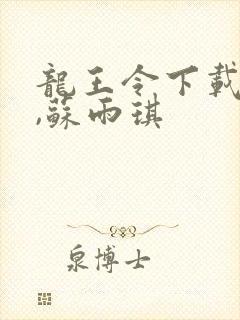 龍王令下載
,蘇雨琪
泉博士